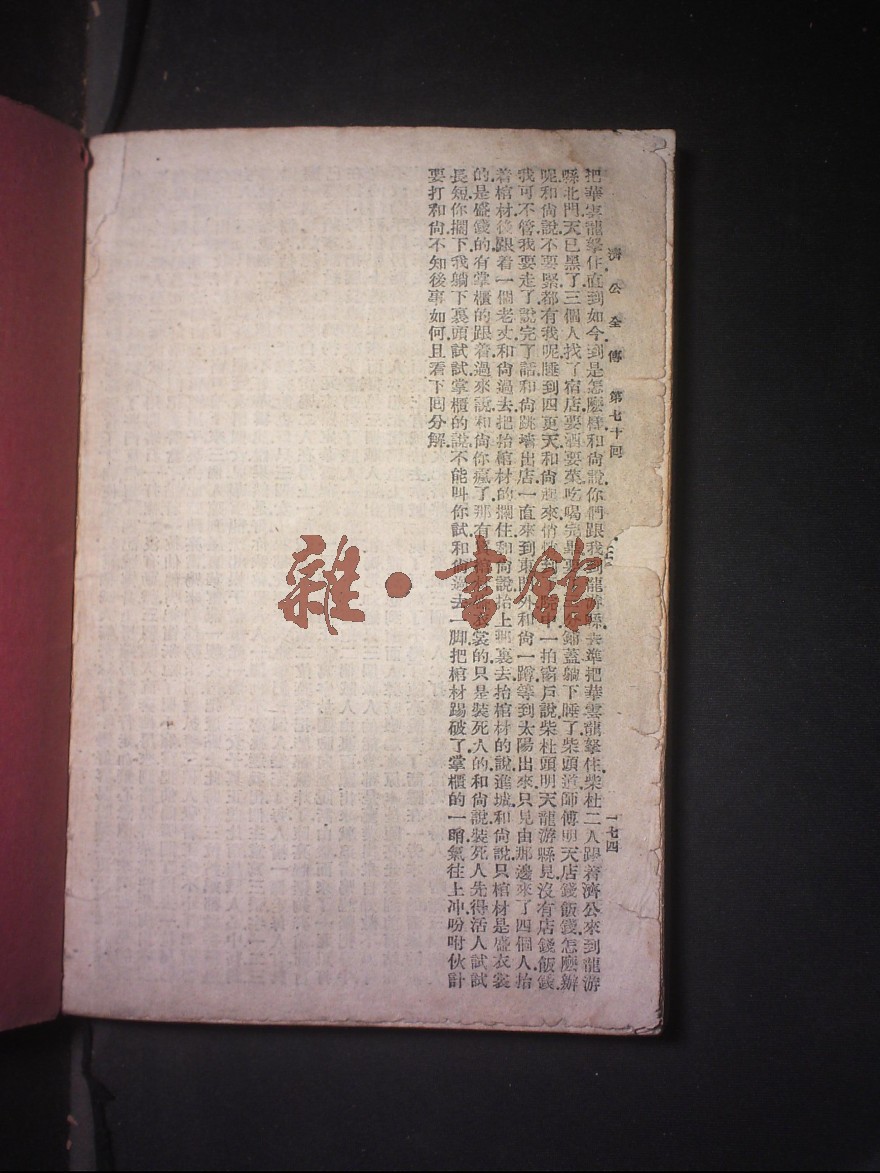 濟公全傳 第七十回 一七四
把華雲龍拏住直到如今到是怎麽樣和尚說你們跟我到龍游縣去準把華雲龍拏住柴杜二人跟着濟公來到龍游
縣北門天已黑了三個人找了宿店要酒要菜吃喝完畢要鋪蓋躺下睡了柴頭道師傅明天店錢飯錢怎麽辦
呢和尚說不要緊都有我呢睡到四更天和尚起來悄悄到院中一拍窗戶說柴杜頭明天龍游縣見沒有店錢飯錢
我可不管我要走了說完了話和尚跳墻出店一直來到東門外和尚一蹲等到太陽出來只見由那邊來了四個人抬
着棺材後跟着一個老丈和尚過去把抬棺材的攔住和尚說抬上那裏去抬棺材的說進城和尚說只棺材是盛衣裳
的是盛錢的有掌櫃的跟着過來說和尚你瘋了那有棺材衣裳的只是裝死人的和尚說裝死人先得活人試試
長短你擱下我躺下裏頭試試掌櫃的說不能叫你試和尚過去一脚把棺材踢破了掌櫃的一瞧氣往上冲吩咐伙計
要打和尚不知後事如何且看下回分解
雜·書館